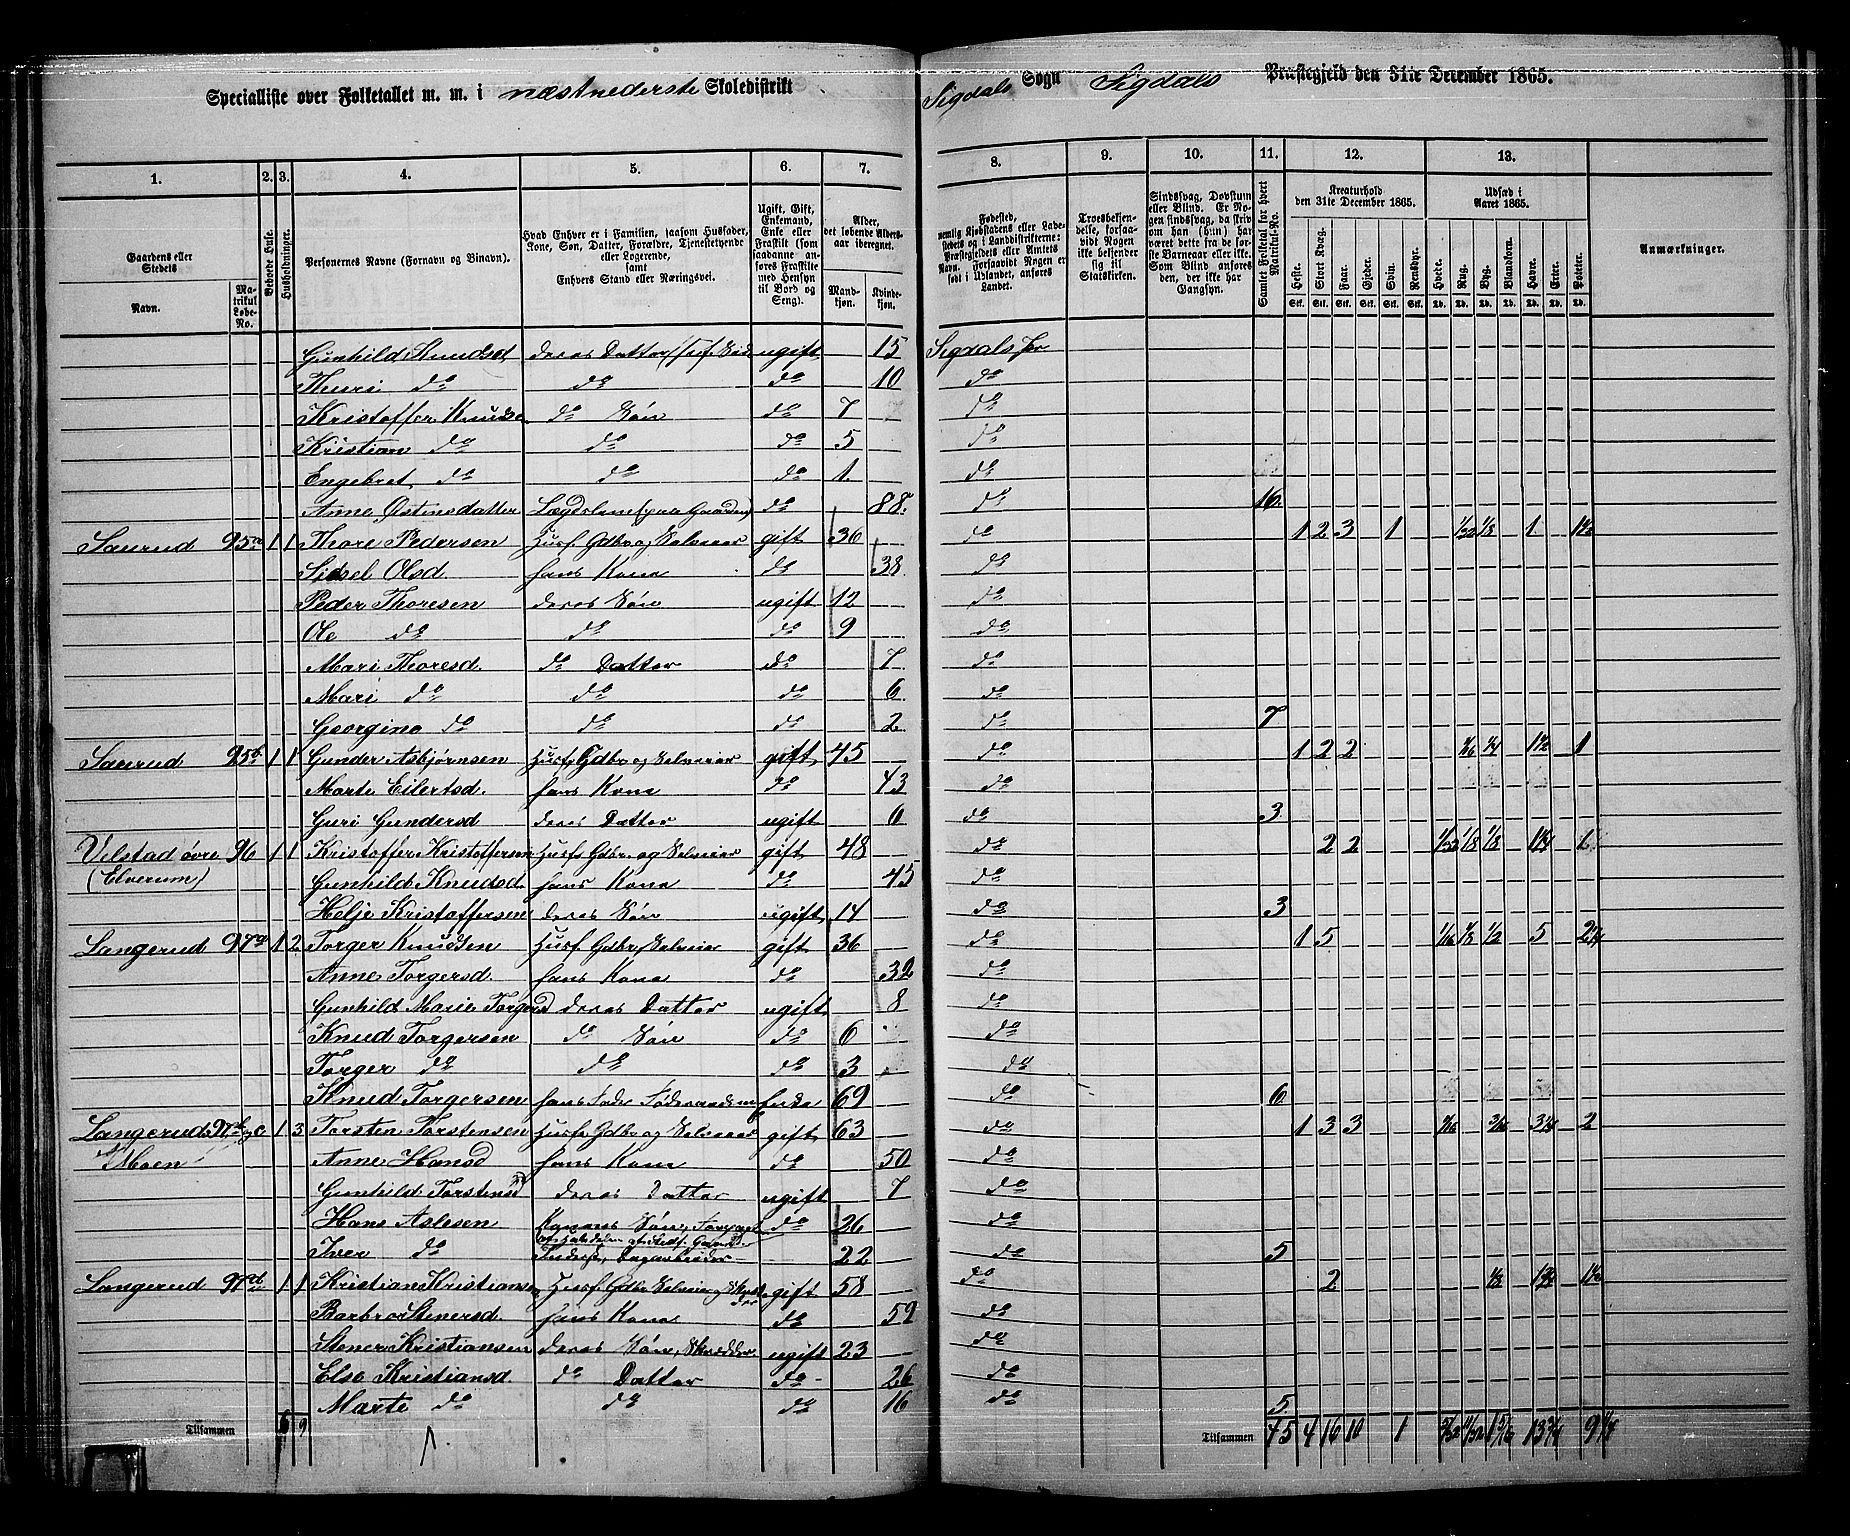 Specialliste over Folketallet m. m. i næstnederste Skoledistrikt Sigdals Sogn Sigdals Præstegjeld den 31te December 1865.
1. 2. 3. 4. 5. 6. 7. 8. 9. 10. 11. 12. 13.
Gaardens eller Stedets Navn. Matrikul Løbe-No. Beboede Huse. Husholdninger. Personernes Navne (Fornavn og Binavn). Hvad Enhver er i Familien, saasom Husfader, Kone, Søn, Datter, Forældre, Tjenestetyende eller Logerende, samt Enhvers Stand eller Næringsvei. Ugift, Gift, Enkemand, Enke eller Fraskilt (som saadanne anføres Fraskilte med Hensyn til Bord og Seng). Alder, det løbende Aldersaar iberegnet. Mandkjøn. Kvindekjøn. Fødested, nemlig Kjøbstadens eller Ladestedets og i Landdistrikterne: Præstegjeldets eller Amtets Navn. Forsaavidt Nogen er født i Udlandet, anføres Landet. Troesbekjendelse, forsaavidt Nogen ikke bekjender sig til Statskirken. Sindssvag, Døvstum eller Blind. Er Nogen sindssvag, da skrives om han (hun) har været dette fra de første Barneaar eller ikke. Som Blind anføres den, der ikke har Gangsyn. Samlet Folketal for hvert Matrikul-No. Kreaturhold den 31te December 1865. Heste. Stort Kvæg. Faar. Gjeder. Svin. Rensdyr. Udsæd i Aaret 1865. Hvede. Rug. Byg. Blandkorn. Havre. Erter. Poteter. Anmærkninger.
Gunhild Knudsd deres Datter ugift 15 Sigdals Pr
Thuri do do do 10 do
Kristoffer Knudsen do Søn do 7 do
Kristian do do do 5 do
Engebret do do do 1 do
Anne Østensdatter Lægdslem (paa Gaarden) do 88 do 16
Saurud 95a 1 1 Thore Pedersen Husf. Gdbr. og Selveier gift 36 do 1 2 3 1 1/32 1/8 1 1½
Sidsel Olsd hans Kone do 38 do
Peder Thoresen deres Søn ugift 12 do
Ole do do do 9 do
Mari Thoresd. do Datter do 7 do
Mari do do do 6 do
Georgine do do do 2 do 7
Saurud 95b 1 1 Gunder Asbjørnsen Husf. Gdbr. og Selveier gift 45 do 1 2 2 1/16 1/4 1½ 1
Marte Eilertsd. hans Kone do 43 do
Guri Gundersd deres Datter ugift 6 do 3
Velstad øvre 96 1 1 Kristoffer Kristoffersen Husf. Gdbr. og Selveier gift 48 do 2 2 1/32 1/8 1/8 1¼ 1
(Elverum) Gunhild Knudsd hans Kone do 45 do
Helje Kristoffersen deres Søn ugift 14 do 3
Langerud 97a 1 2 Torger Knudsen Husf. Gdbr. Selveier gift 36 do 1 5 1/16 1/8 1/2 5 2¼
Anne Torgersd hans Kone do 32 do
Gunhild Marie Torgersd deres Datter ugift 8 do
Knud Torgersen do Søn do 6 do
Torger do do do 3 do
Knud Torgersen hans Fader Føderaadsm Enke 69 do 6
Langerud 97b og c 1 3 Torsten Torstensen Husf. Gdbr og Selveier gift 63 do 1 3 3 3/16 3/16 3¼ 2
Moen Anne Hansd hans Kone do 50 do
Gunhild Torstensd deres Datter ugift 7 do
Hans Aslesen Konens Søn do 26 do
Iver do Inderst, Dagarbeider 22 do 5
Langerud 97d 1 1 Kristian Kristiansen Husf. Gdbr Selveier og Skredder gift 58 do 2 1/8 1¾ 1½
Barbro Stenersd hans Kone do 59 do
Stener Kristiansen deres Søn, Skredder ugift 23 do
Else Kristiansd do Datter do 26 do
Marte do do do 16 do 5
Tilsammen 6 9 Tilsammen 45 4 16 10 1 13¾ 9¼